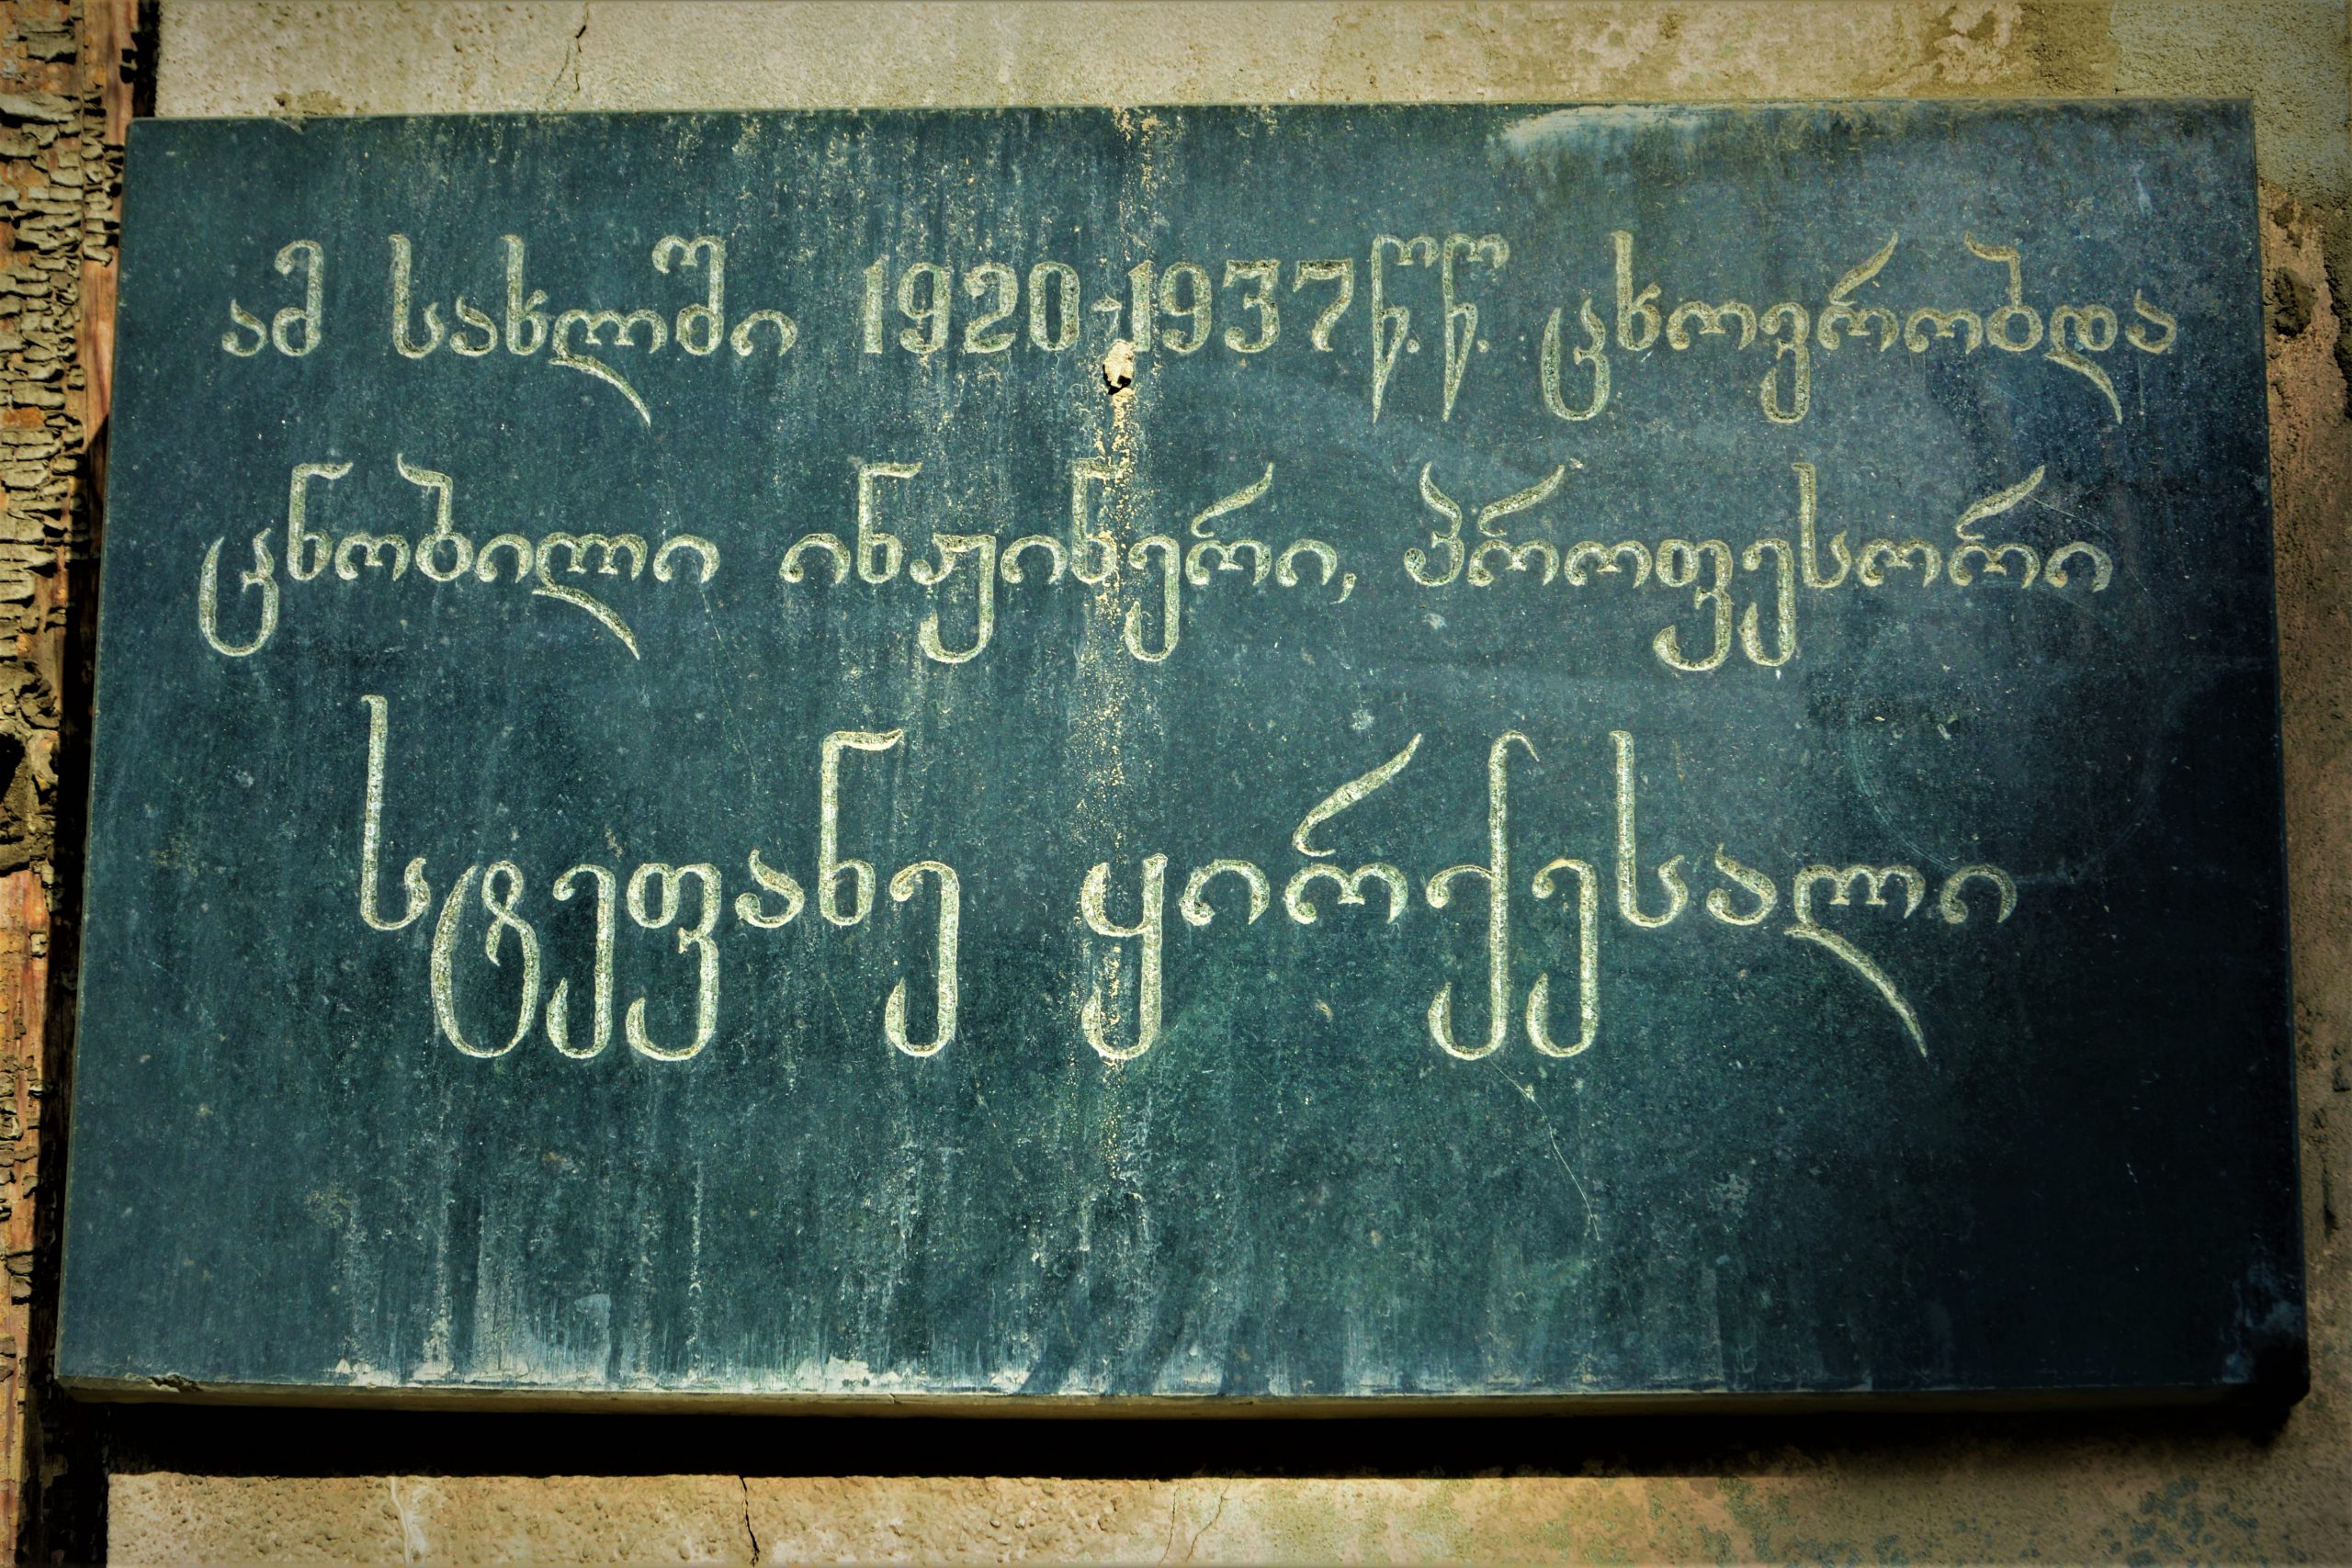 ამ სახლში 1920-1937წ.წ. ცხოვრობდა
ცნობილი ინჟინერი, პროფესორი
სტეფანე ყირქესალი